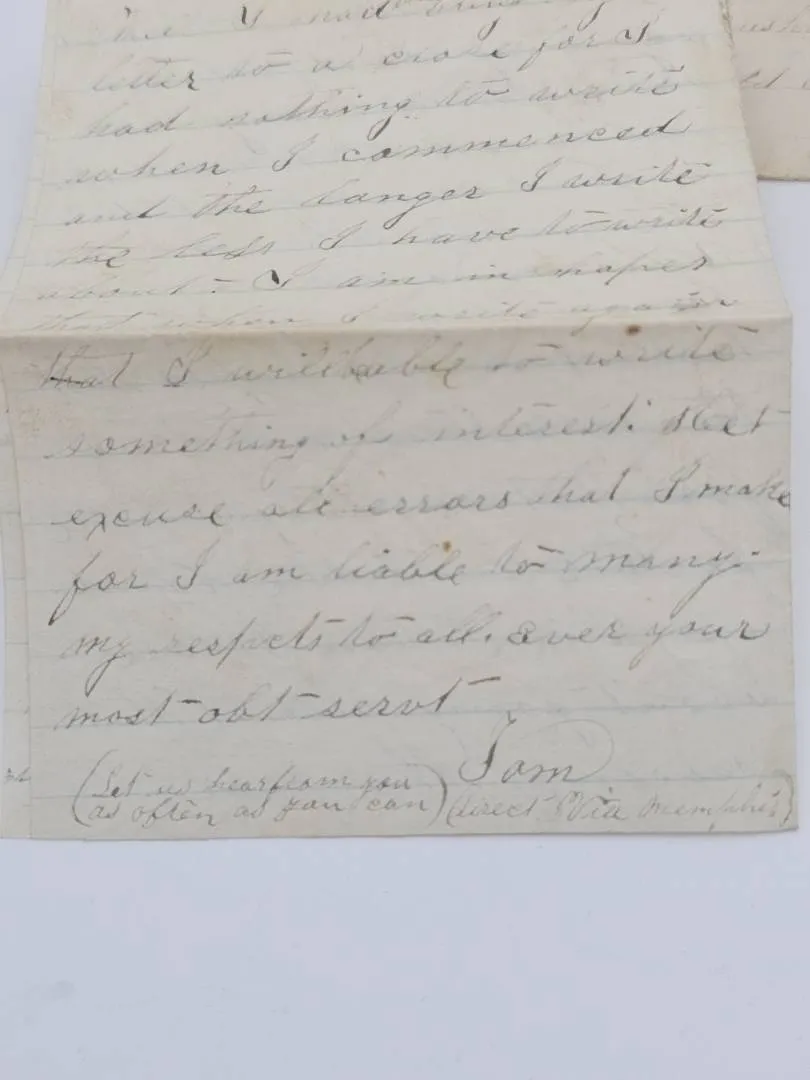 I had
letter to a close for I
had nothing to write
when I commenced
and the longer I write
the less I have to write
about. I am in hopes
that when I write again
that I will be able to write
something of interest.
excuse all errors that I make
for I am liable to many.
my respects to all. ever your
most obt servt
Tom
(Let us hear from you
as often as you can)
(direct Via Memphis)